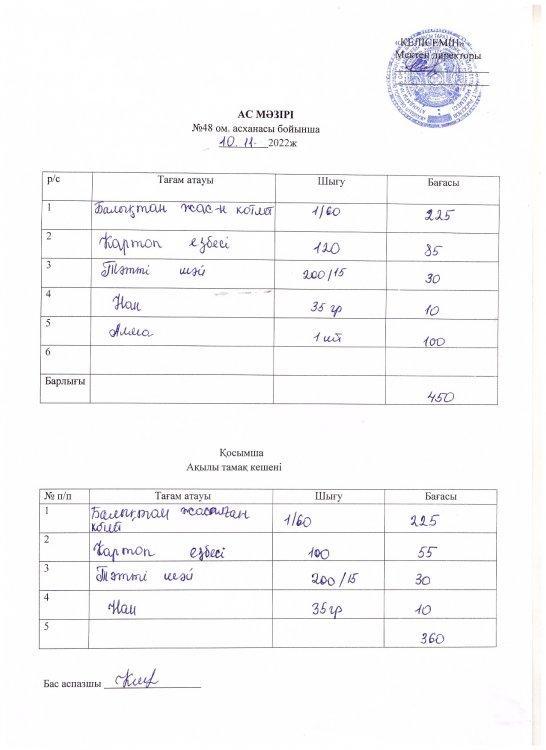 «КЕЛІСЕМІН»
Мектеп директоры
АС МӘЗІРІ
№48 ом. асханасы бойынша
10. 11. 2022ж
р/с Тағам атауы Шығу Бағасы
1 Балықтан жас-н котлет 1/60 225
2 Картоп езбесі 120 85
3 Тәтті шәй 200/15 30
4 Нан 35 гр 10
5 Алма 1 шт 100
6
Барлығы 450
Қосымша
Ақылы тамақ кешені
№ п/п Тағам атауы Шығу Бағасы
1 Балықтан жасалған 1/60 225
2 Картоп езбесі 100 55
3 Тәтті шәй 200/15 30
4 Нан 35 гр 10
5 360
Бас аспазшы